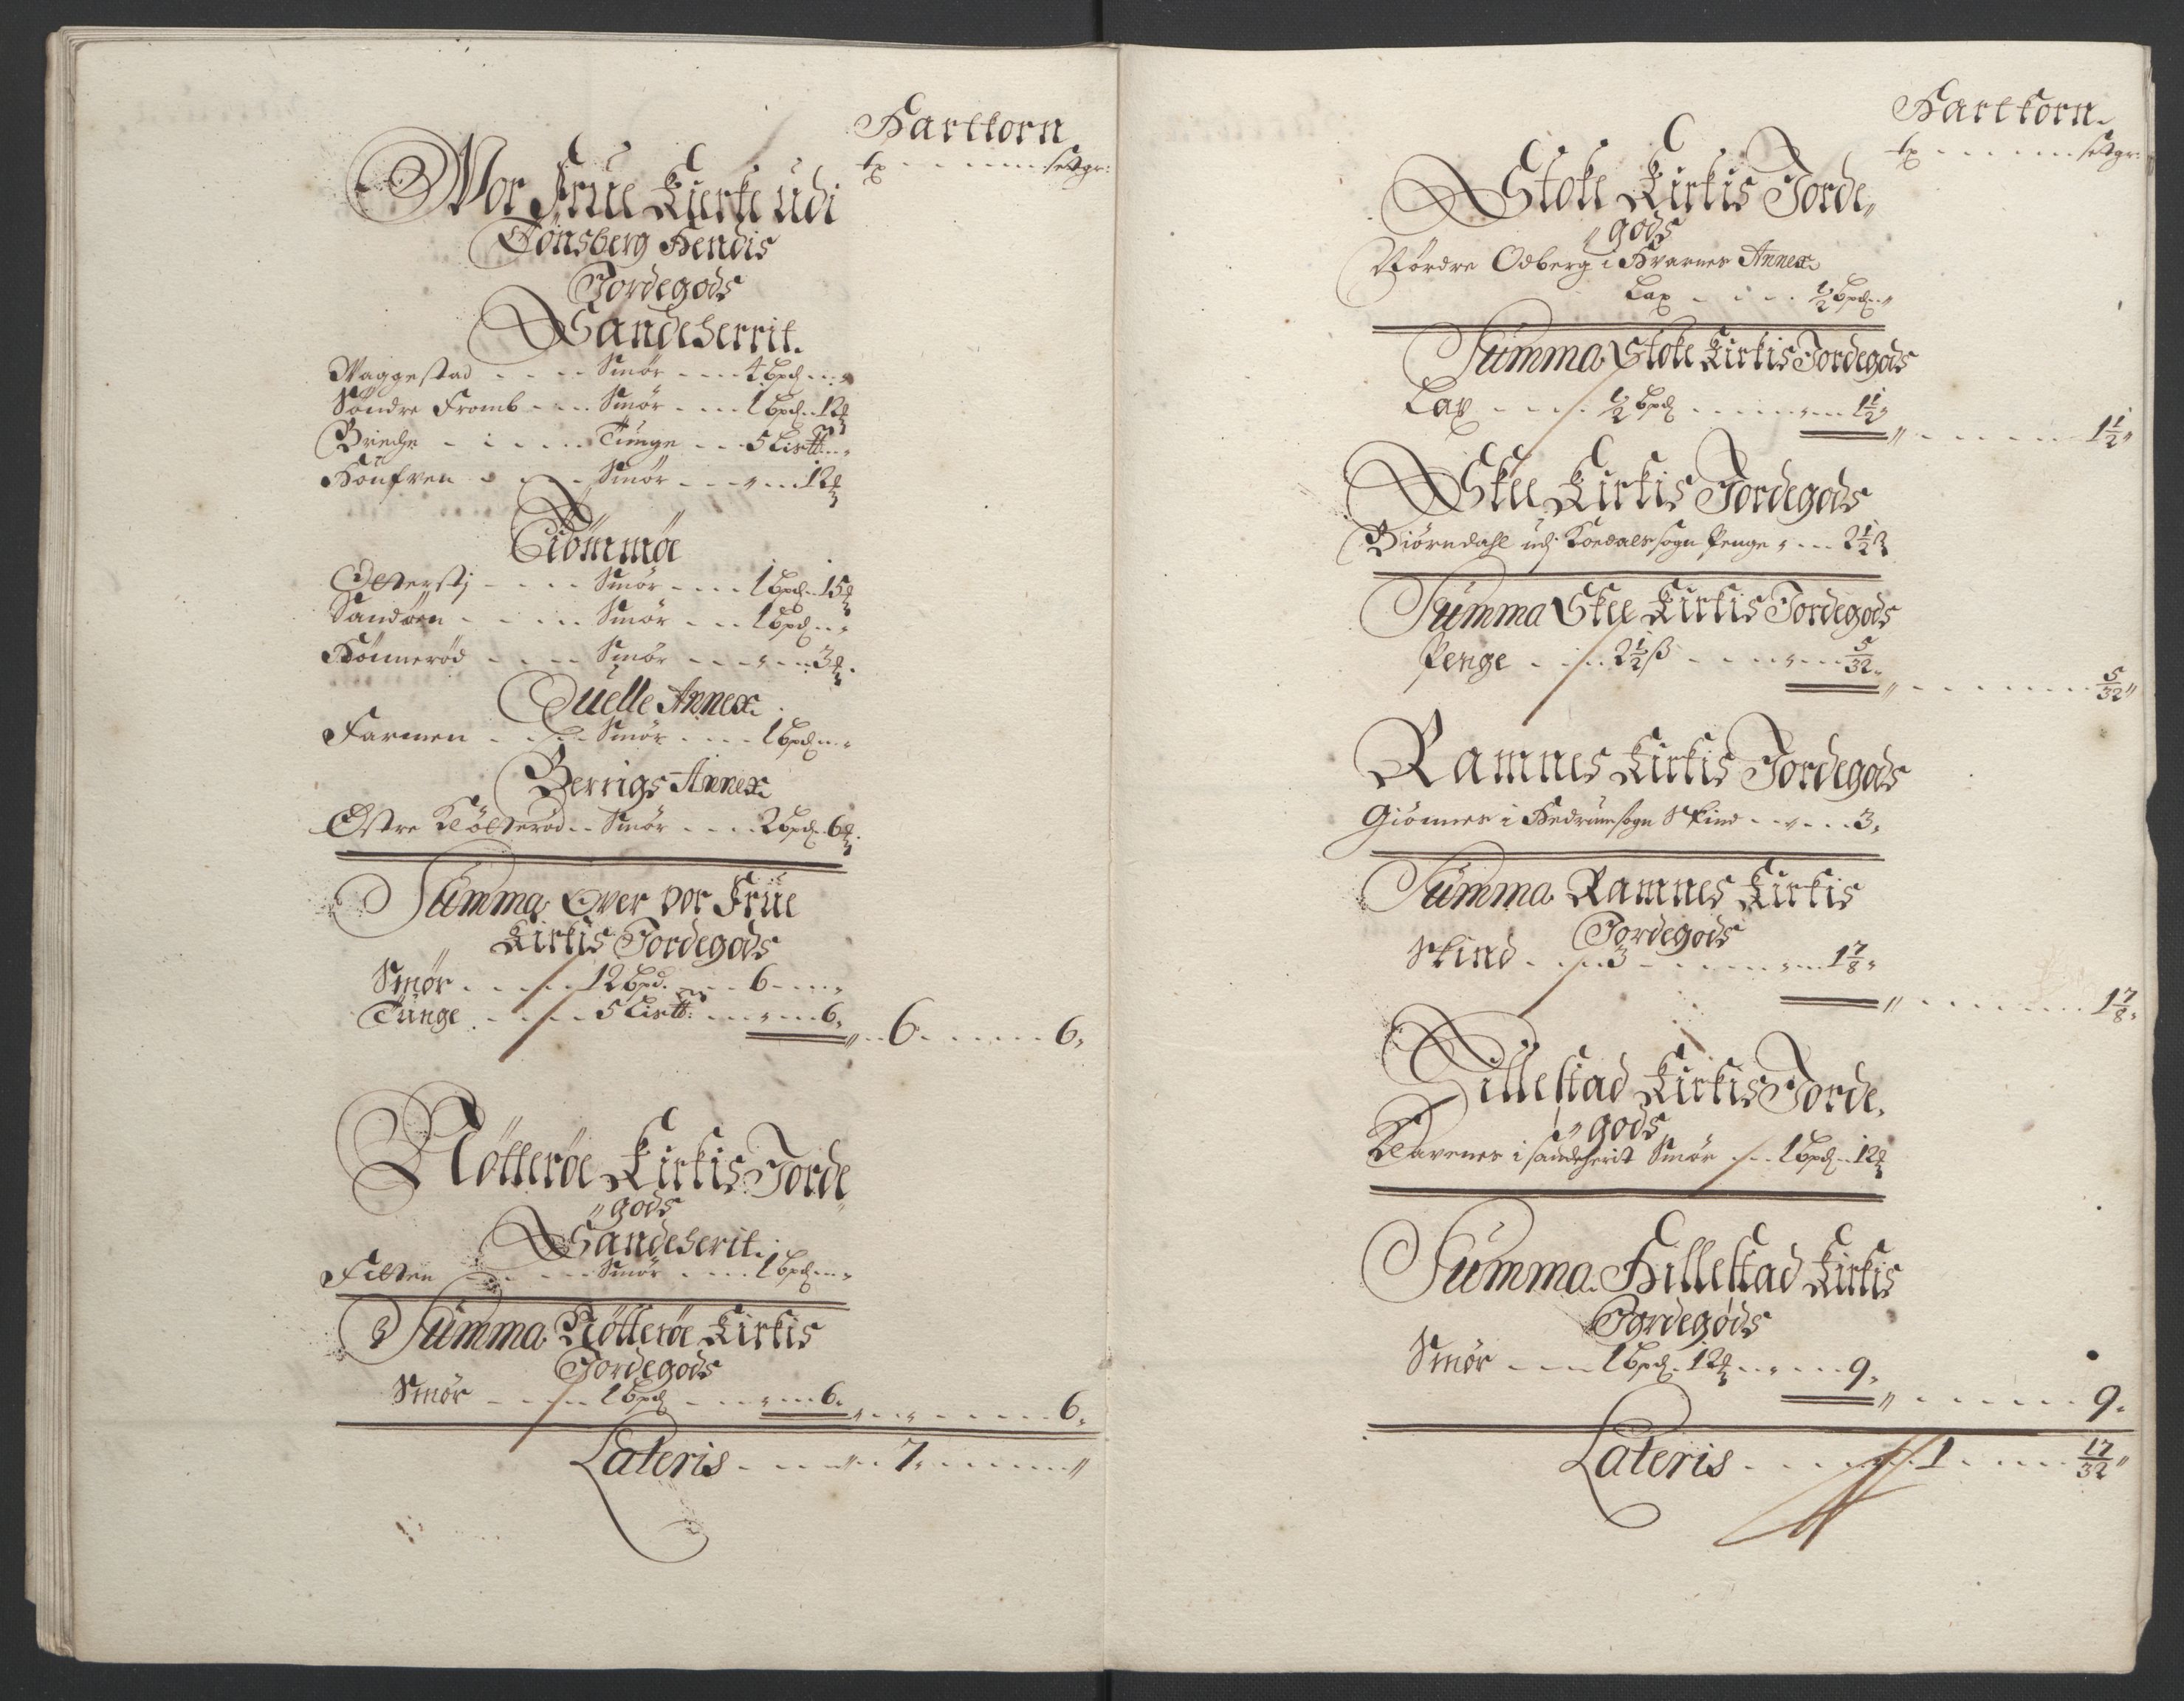 Harttkorn
tø - - - - - settgr:
Vor Frue Kierke udi
Tönsberg Hendis
Jordegods
Sandeherrit.
Waggestad - - - - Smør - - - 4 bpd - - „
Søndre Fromb - - - Smør - - - 1 bpd - 12
Brieche - - - - - Tunge - - - 5 List - - „
Smør - - - „ - - 12
Tiömmöe
Smør - - - 1 bpd - 15
Sandöen - - - - - Smør - - - 1 bpd - - „
Hönnerød - - - - Smør - - - „ - - 3
Quelle Annex
Farmen - - - - - Smør - - - 1 bpd - - „
Berrigs Annex
Østre Kløtterød - - Smør - - - 2 bpd - 6
Summa Over vor Frue
Kirkis Jordegods
Smør - - - - 12 bpd. - - - 6 - - - „
Tunge - - - - 5 List - - - „ - - 6„
„ - - 6 - - - - - 6„
Nötteröe Kirkis Jorde
„ gods
Sandeherit.
Smør - - - - 1 bpd - - „
Summa Nötteröe Kirkis
Jordegods
Smør - - - - 1 bpd - - - „ - - 6„
„ - - „ - - - - - 6„
Lateris - - - - „ - - 7„ - - - - - „
Harttkorn
tø - - - - - settgr:
Stoke Kirkis Jorde„
„ gods
Nørdre Odberg i Hvarnes Annex
Lax - - - - ½ bpd - „
Summa Stoke Kirkis Jordegods
Lax - - - - ½ bpd - - - - „ - - 1½„
„ - - - - - - 1½„
Skee Kirkis Jordegods
Biörndahl udj Koedals sogn Penge „ - - - 2½ ß
Summa Skee Kirkis Jordegods
Penge - - - - 2½ ß - - - - „ - - 5/32„
„ - - - - - - - 5/32„
Ramnes Kirkis Jordegods
Giönnes i Hedrum sogn Skind - - „ - - 3„
Summa Ramnes Kirkis
Jordegods
Skind - - - - 3 - - - - - „ - - 1 7/8„
„ - - - - - - 1 7/8„
Hillestad Kirkis Jorde„
„ gods
Klavenes i sandeherit Smør - - - 1 bpd - 12
Summa Hillestad Kirkis
Jordegods
Smør - - - 1 bpd - 12 - - „ - - - 9„
„ - - - - - - - 9„
Lateris - - - - „ - - 1 - - - - 17/32„